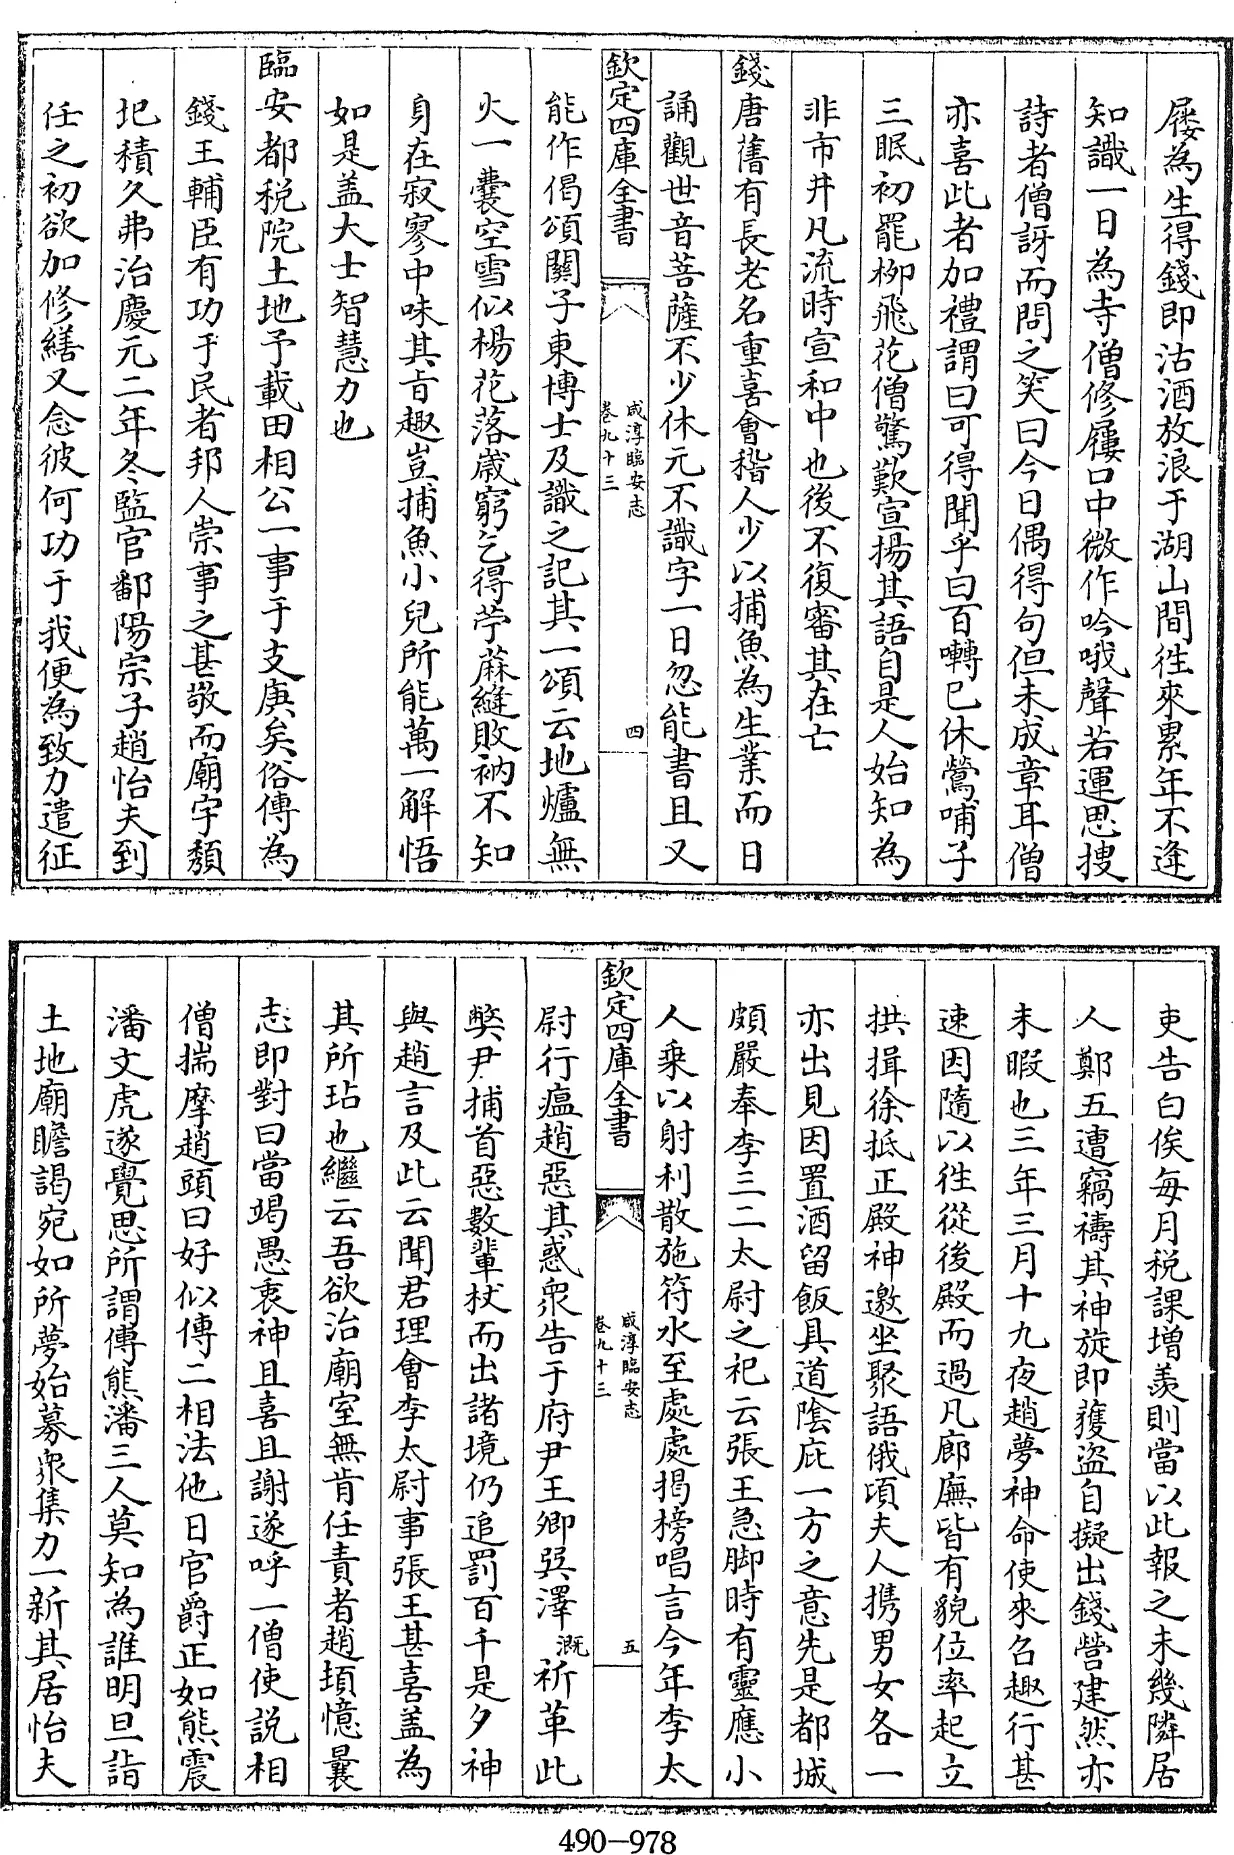 屨為生得錢即沽酒放浪于湖山間徃來累年不逢
知識一日為寺僧修屨口中微作吟哦聲若運思捜
詩者僧訝而問之笑曰今日偶得句但未成章耳僧
亦喜此者加禮謂曰可得聞乎曰百囀已休鶯哺子
三眠初罷栁飛花僧驚歎宣揚其語自是人始知為
非市井凡流時宣和中也後不復審其在亡
錢唐舊有長老名重喜會稽人少以捕魚為生業而日
誦觀世音菩薩不少休元不識字一日忽能書且又
欽定四庫全書
咸淳臨安志
卷九十三
四
能作偈頌關子東博士及識之記其一頌云地爐無
火一囊空雪似楊花落嵗窮乞得苧蔴縫敗衲不知
身在寂寥中味其㫖趣豈捕魚小兒所能萬一解悟
如是盖大士智慧力也
臨安都税院土地予載田相公一事于支庚矣俗傳為
錢王輔臣有功于民者邦人崇事之甚敬而廟宇頽
圮積久弗治慶元二年冬監官鄱陽宗子趙怡夫到
任之初欲加修繕又念彼何功于我便為致力遣征
吏告白俟每月税課増羨則當以此報之未幾隣居
人鄭五遭竊禱其神旋即獲盗自擬出錢營建然亦
未暇也三年三月十九夜趙夢神命使來召趣行甚
速因隨以徃從後殿而過凡廊廡皆有貌位率起立
拱揖徐抵正殿神邀坐聚語俄頃夫人携男女各一
亦出見因置酒留飯具道隂庇一方之意先是都城
頗嚴奉李三二太尉之祀云張王急脚時有靈應小
人乗以射利散施符水至處處掲榜唱言今年李太
欽定四庫全書
咸淳臨安志
卷九十三
五
尉行瘟趙惡其惑衆告于府尹王卿㒷澤溉祈革此
弊尹捕首惡數輩杖而出諸境仍追罰百千是夕神
與趙言及此云聞君理會李太尉事張王甚喜盖為
其所玷也繼云吾欲治廟室無肯任責者趙頊憶曩
志即對曰當竭愚衷神且喜且謝遂呼一僧使説相
僧揣摩趙頭曰好似傳二相法他日官爵正如熊震
潘文虎遂覺思所謂傳熊潘三人莫知為誰明旦詣
土地廟瞻謁宛如所夢始募衆集力一新其居怡夫
490-978